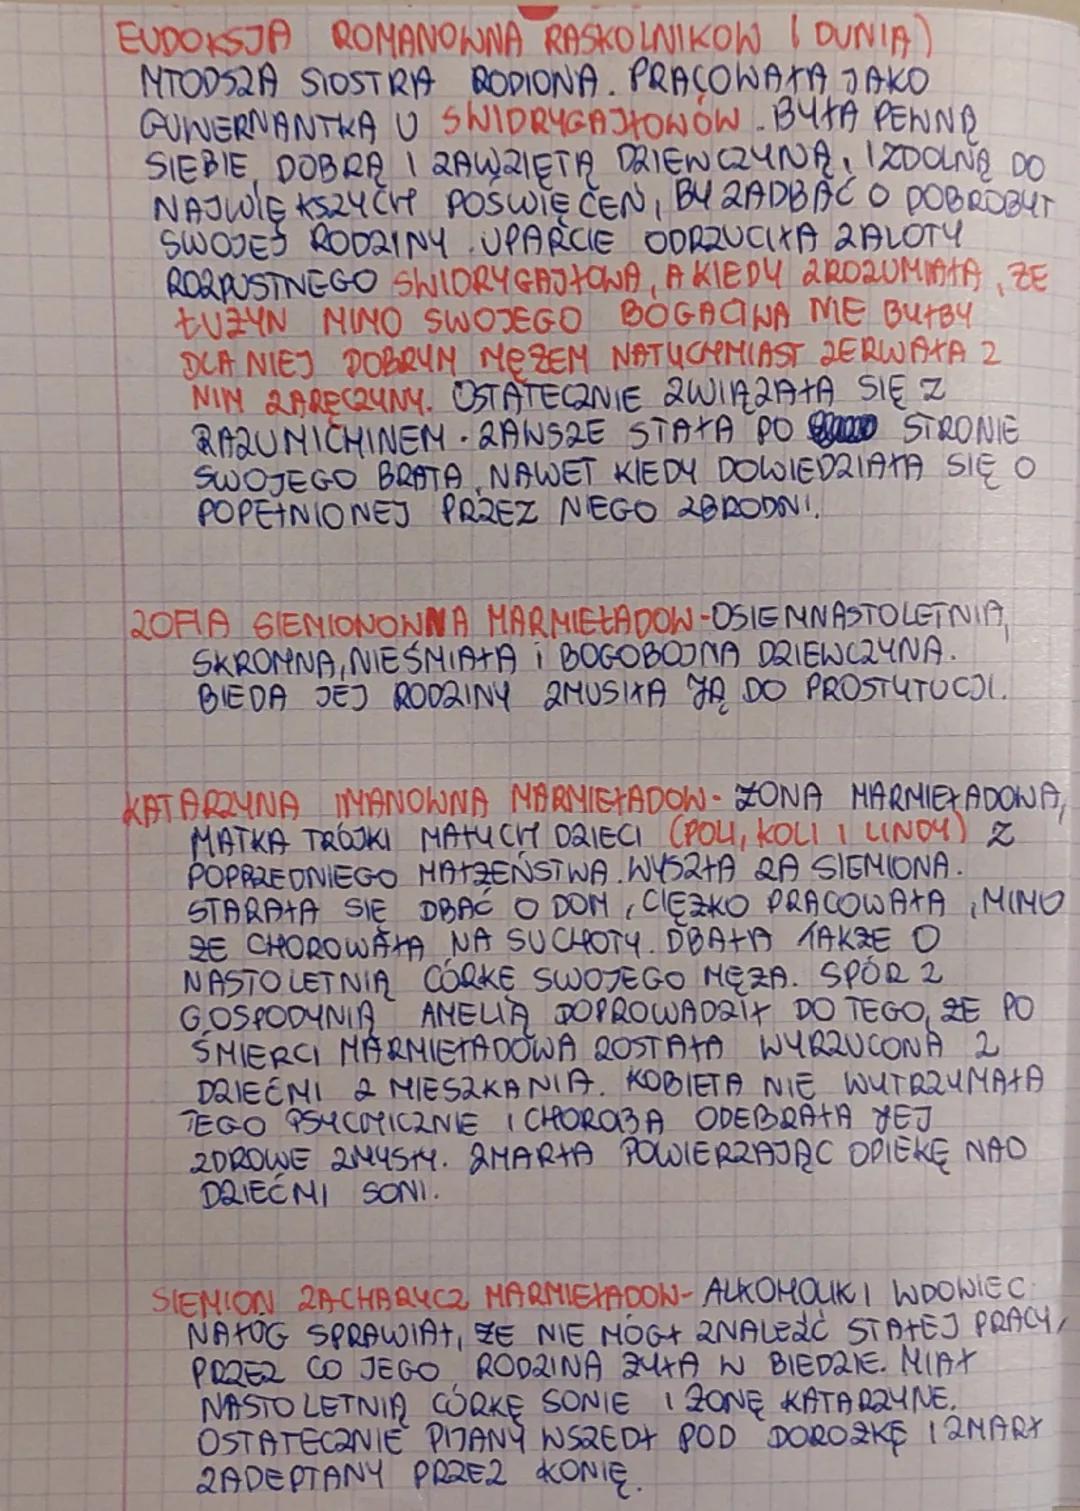 EUDOKSJA ROMANOWNA RASKOLNIKOW (DUNIA)
MŁODSZA SIOSTRA RODIONA. PRACOWAŁA JAKO
GUWERNANTKA U SWIDRYGAJŁOWÓW. BYŁA PEWNĄ
SIEBIE, DOBRĄ I ZAWZIĘTĄ DZIEWCZYNĄ, I ZDOLNĄ DO
NAJWIĘKSZYCH POŚWIĘCEŃ, BY ZADBAĆ O DOBROBYT
SWOJEJ RODZINY. UPARCIE ODRZUCIŁA ZALOTY
ROZPUSTNEGO SWIDRYGAJŁOWA, A KIEDY ZROZUMIAŁA, ŻE
ŁUŻYN MIMO SWOJEGO BOGACTWA NIE BYŁBY
DLA NIEJ DOBRYM MĘŻEM NATYCHMIAST ZERWAŁA Z
NIM ZARĘCZYNY. OSTATECZNIE ZWIĄZAŁA SIĘ Z
RAZUMICHINEM. ZAWSZE STAŁA PO STRONIE
SWOJEGO BRATA, NAWET KIEDY DOWIEDZIAŁA SIĘ O
POPEŁNIONEJ PRZEZ NIEGO ZBRODNI.
ZOFIA SIEMIONOWNA MARMIEŁADOW-OSIEMNASTOLETNIA,
SKROMNA, NIEŚMIAŁA i BOGOBOJNA DZIEWCZYNA.
BIEDA JEJ RODZINY ZMUSIŁA JĄ DO PROSTYTUCJI.
KATARZYNA IWANOWNA MARMIEŁADOW- ŻONA MARMIEŁADOWA,
MATKA TRÓJKI MAŁYCH DZIECI (POLI, KOLI I LINDY) Z
POPRZEDNIEGO MAŁŻEŃSTWA. WYSZŁA ZA SIEMIONA.
STARAŁA SIĘ DBAĆ O DOM, CIĘŻKO PRACOWAŁA, MIMO
ŻE CHOROWAŁA NA SUCHOTY. DBAŁA TAKŻE O
NASTOLETNIĄ CÓRKĘ SWOJEGO MĘŻA. SPÓR Z
GOSPODYNIĄ AMELIĄ DOPROWADZIŁ DO TEGO, ŻE PO
ŚMIERCI MARMIEŁADOWA ZOSTAŁA WYRZUCONA Z
DZIEĆMI Z MIESZKANIA. KOBIETA NIE WYTRZYMAŁA
TEGO PSYCHICZNIE I CHOROBA ODEBRAŁA JEJ
ZDROWE ZMYSŁY. ZMARŁA POWIERZAJĄC OPIEKĘ NAD
DZIEĆMI SONI.
SIEMION ZACHARYCZ MARMIEŁADOW- ALKOHOLIK I WDOWIEC.
NAŁÓG SPRAWIAŁ, ŻE NIE MÓGŁ ZNALEŹĆ STAŁEJ PRACY,
PRZEZ CO JEGO RODZINA ŻYŁA W BIEDZIE. MIAŁ
NASTOLETNIĄ CÓRKĘ SONIE I ŻONĘ KATARZYNE.
OSTATECZNIE PIJANY WSZEDŁ POD DOROŻKĘ I ZMARŁ
ZADEPTANY PRZEZ KONIĘ.